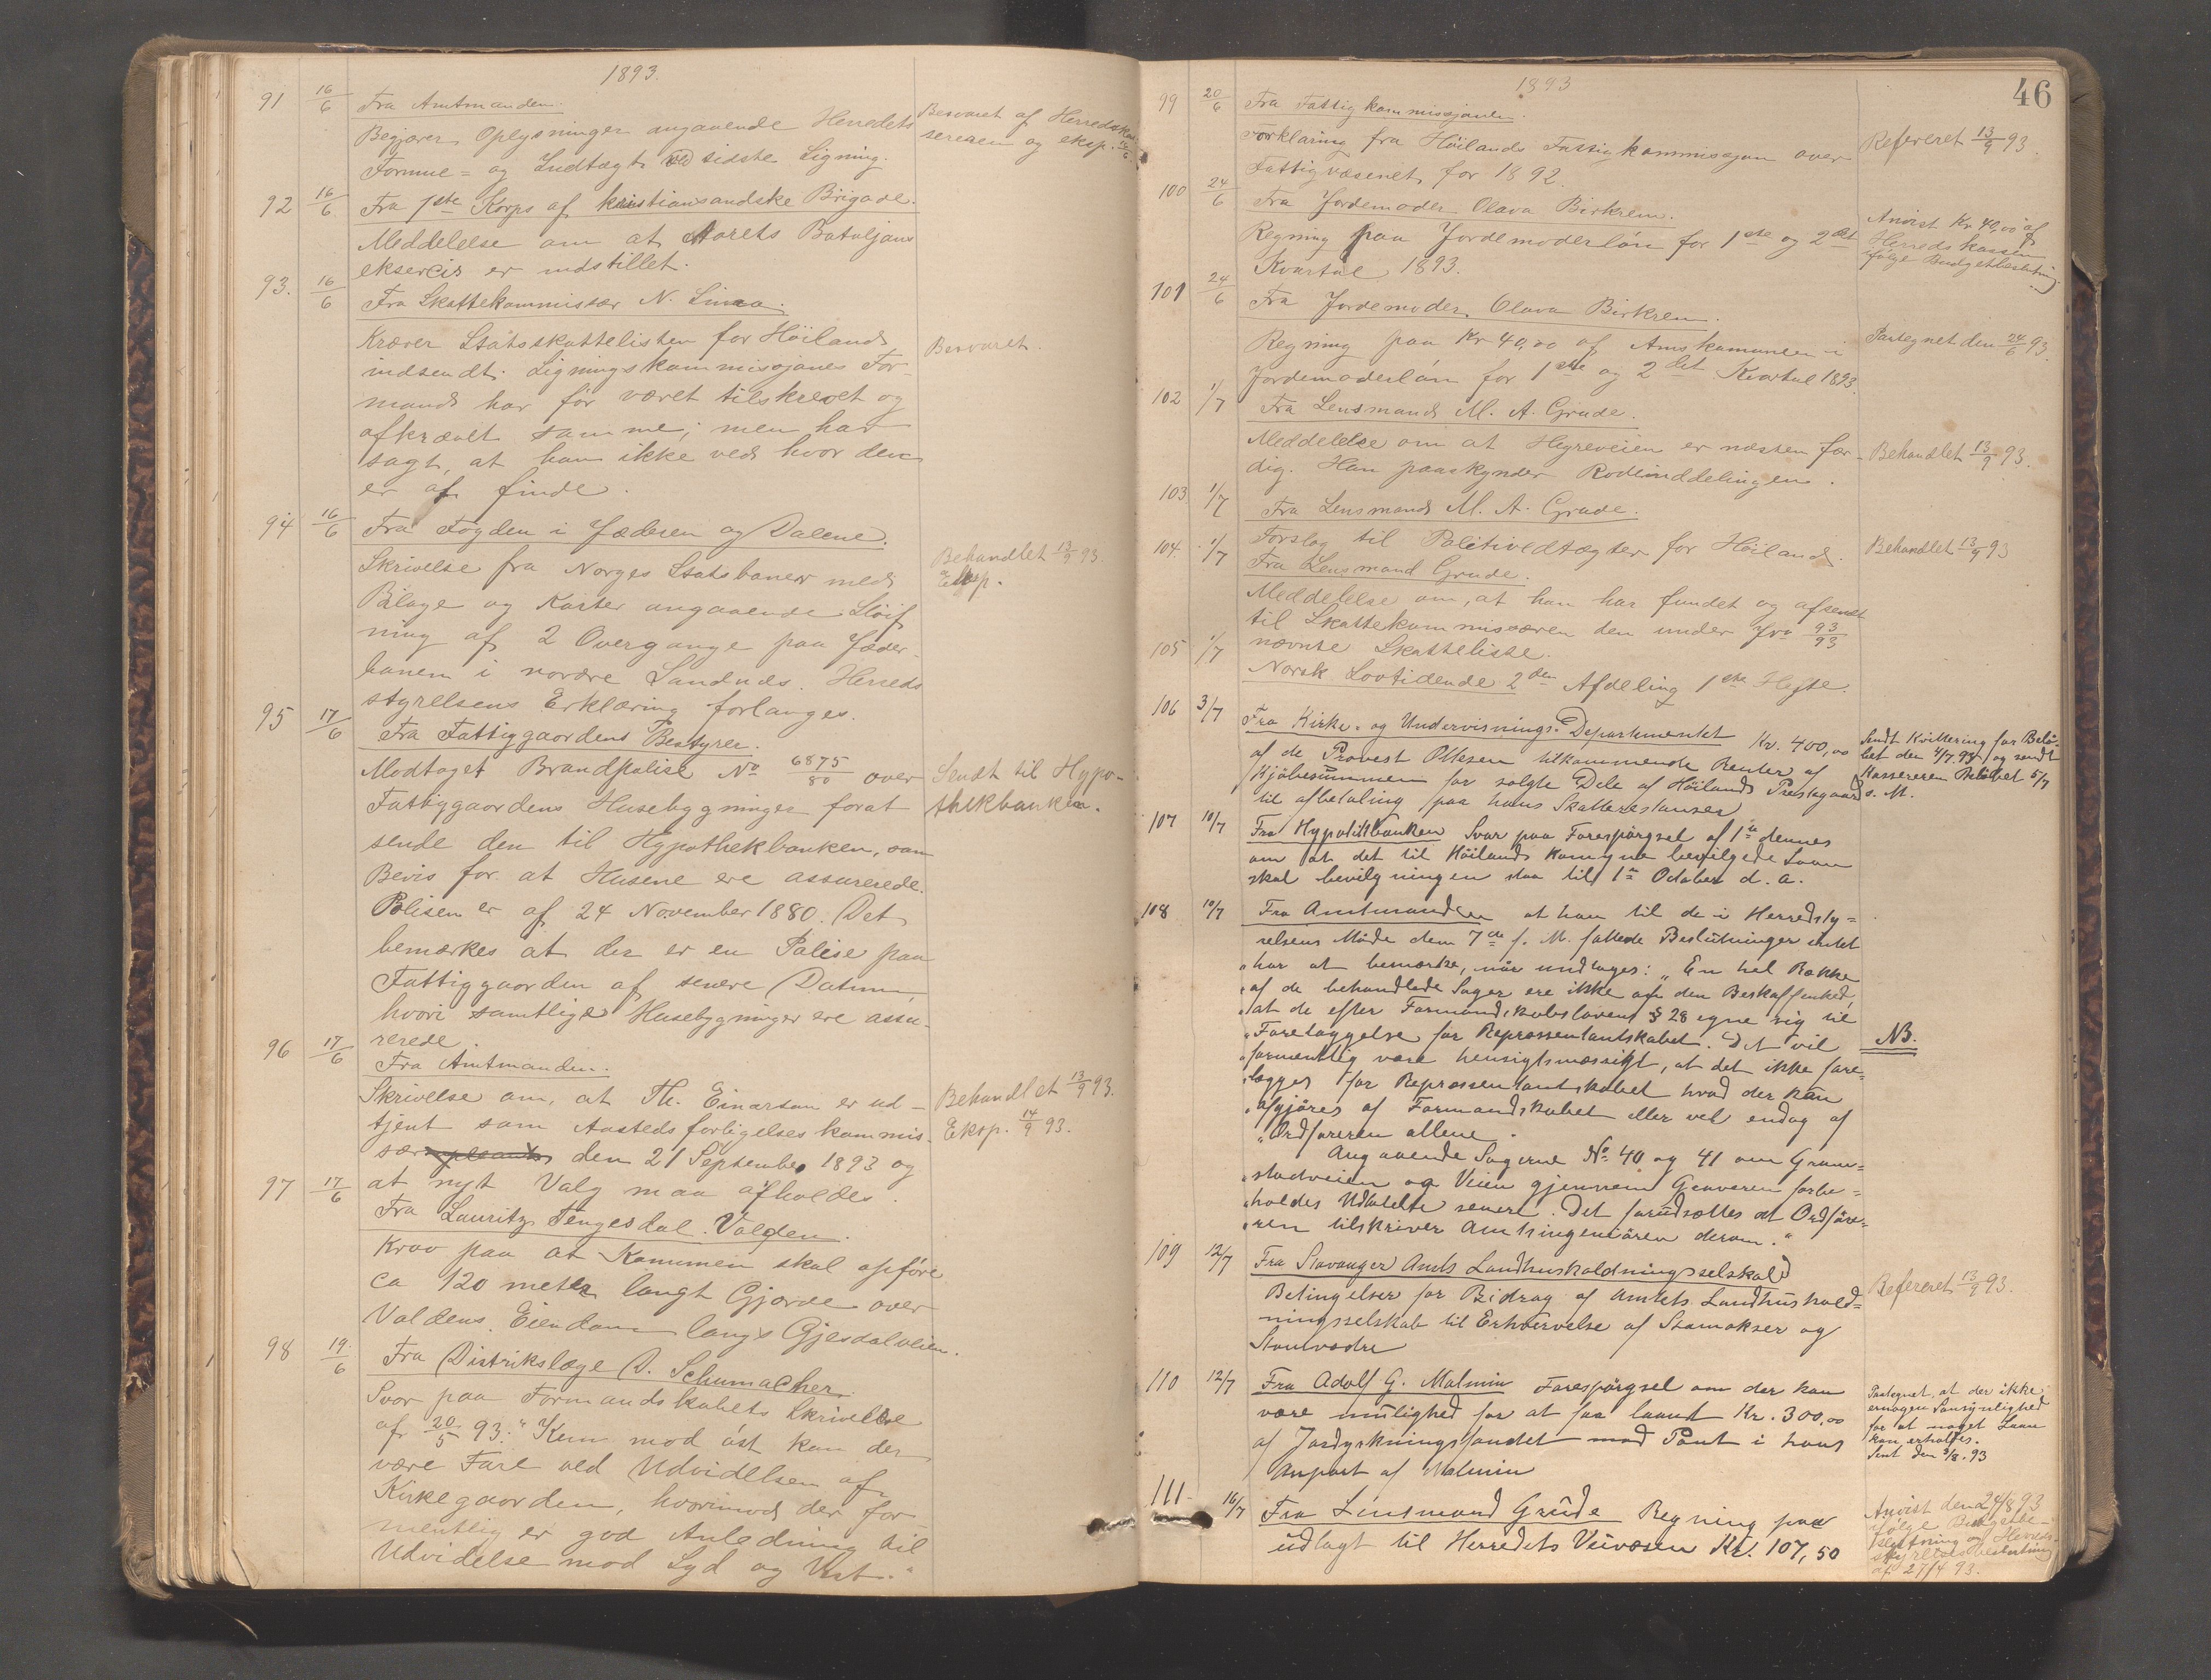 1893.
91 16/6 Fra Amtmanden.
Begjærer Oplysninger angaaende Herredets
Formue- og Indtægt ved sidste Ligning.
Besvaret af Herredskas-
sereren og eksp.
92 16/6 Fra 1ste Korps af Kristiansandske Brigade.
Meddelelse om at Aarets Bataljons
eksercis er indstillet.
93. 16/6 Fra Skattekommissær N. Sima.
Kræver Statsskattelisten for Höiland
indsendt. Ligningskommissjonens For-
mand har för været tilskrevet og
afkrævet samme; men har
sagt, at han ikke ved hvor den
er at finde.
Besvaret.
94 16/6 Fra Fogden i Jæderen og Dalene.
Skrivelse fra Norges Statsbaner med
Bilage og Karter angaaende Slöif-
ning af 2 Overgange paa Jæder-
banen i nordre Sandnes. Herreds
styrelsens Erklæring forlanges.
Behandlet 13/9 93.
Eksp.
95 17/6 Fra Fattiggaardens Bestyrer.
Modtaget Brandpolise No 6875/80 over
Fattiggaardens Husebygninger forat
sende den til Hypothekbanken, som
Bevis for at Husene ere assurerede.
Polisen er af 24 November 1880. Det
bemærkes at der er en Polise paa
Fattiggaarden af senere Datum,
hvori samtlige Husebygninger ere assu-
rerede.
Sendt til Hypo-
thekbanken.
96 17/6 Fra Amtmanden.
Skrivelse om, at Th. Einarsen er ud-
tjent som Aastedsforligelseskommis-
sær den 21 September 1893 og
at nyt Valg maa afholdes.
Behandlet 13/9 93.
Eksp. 14/9 93.
97 17/6 Fra Lauritz Tengesdal. Valden.
Krav paa at Kommunen skal opföre
ca 120 meter langt Gjærde over
Valdens Eiendom langs Gjesdalveien.
98 19/6 Fra Distrikslæge D. Schumacher
Svar paa Formandskabets Skrivelse
af 20/5 93: "Kun mod öst kan der
være Fare ved Udvidelsen af
Kirkegaarden, hvorimod der for-
mentlig er god Anledning til
Udvidelse mod Syd og Vest."
46
1893
99 20/6 Fra Fattigkommissjonen.
Forklaring fra Höilands Fattigkommissjon over
Fattigvæsenet for 1892.
Refereret 13/9 93.
100 24/6 Fra Jordemoder Olava Birkrem.
Regning paa Jordemoderlön for 1ste og 2det
Kvartal 1893.
Anvist Kr. 40,00 af
Herredskassen
ifölge Budgetbeslutning
101 24/6 Fra Jordemoder Olava Birkrem.
Regning paa Kr 40,00 af Amskommunen i
Jordemoderlön for 1ste og 2det Kvartal 1893.
Paategnet den 24/6 93.
102 1/7 Fra Lensmand M. A. Grude.
Meddelelse om at Høgreveien er næsten fær-
dig. Han paaskynder Rodeinddelingen.
Behandlet 13/9 93.
103. 1/7 Fra Lensmand M. A. Grude.
Forslag til Politivedtægter for Höiland.
Behandlet 13/9 93
104. 1/7 Fra Lensmand Grude.
Meddelelse om, at han har fundet og afsendt
til Skattekommissæren den under Jno 93/93
nævnte Skatteliste.
105 1/7 Norsk Lovtidende 2den Afdeling 1ste Hefte.
106 3/7 Fra Kirke- og Undervisnings-Departementet Kr. 400,00
af de Provst Oftesen tilkommende Renter af
Kjöbesummen for solgte Dele af Höilands Prestegaard
til afbetaling paa hans Skatterestanser
Sendt Kvittering for Belö-
bet den 4/7.93 og sendt
Kassereren Belöbet 5/7
s. M.
107 10/7 Fra Hypothekbanken Svar paa Forespörgsel af 1ste dennes
om at det til Höilands Komune bevilgede Laan
skal bevilgningen staa til 1ste October d. a.
108 10/7 Fra Amtmanden at han til de i Herredsty=
relsens Möde dem 7de f. M. fattede Beslutninger intet
"har at bemærke, naar undtages: "En hel Række
"af de behandlede Sager ere ikke af den Beskaffenhed,
"at de efter Formandskabslovens § 28 egne sig til
"Foretaggelse for Repræsentantskabet. Det vil
"formentlig være hensigtsmæssigt, at det ikke fore=
"lægges for Repræsentantskabet hvad der kan
"afgjöres af Formandskabet eller vel endog af
"Ordföreren allene.
NB.
Angaaende Sagerne No 40 og 41 om Gram=
"stadveien og Veien gjennem Graveren forbe=
"holdes Udtalelse senere. Det forudsættes at Ordföre=
"ren tilskriver Amtsingeniören derom."
109 12/7 Fra Stavanger Amts Landhusholdningsselskab
Betingelser for Bidrag af Amtets Landhushold=
ningsselskab til Erhvervelse af Stamokser og
Stamvædre
Refereret 13/9 93.
110 12/7 Fra Adolf G. Malmin Forespörgsel om der kan
være mulighed for at faa laant Kr. 300,00
af Jordyrkningsfondet mod Pant i hans
Anpart af Malmin
Paategnet, at der ikke
er nogen Sansynlighed
for at noget Laan
kan erholdes.
Sent den 3/8.93
111- 16/7 Fra Lensmand Grude Regning paa
udlagt til Herredets Veivæsen Kr. 107,50
Anvist den 24/8 93
ifölge Budgetbe-
slutning og Herreds-
styrelsesbeslutning
af 27/4 93.